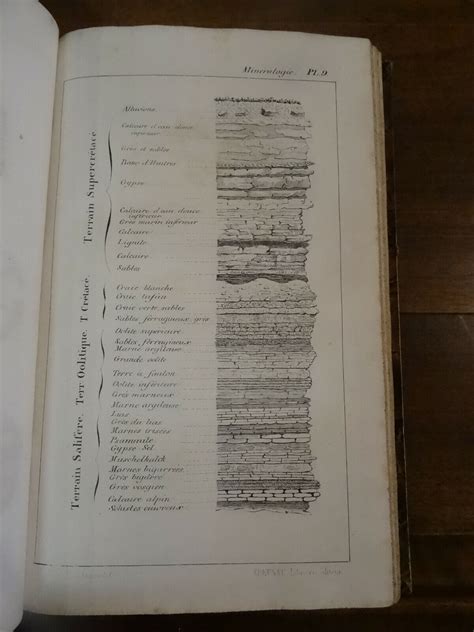 Minéralogie. Pl. 9
Terrain Supercrétacé
Alluvions
Calcaire d'eau douce
supérieur
Grès et sables
Banc d'Huitres
Gypse
Calcaire d'eau douce
inférieur
Grès marin inférieur
Calcaire
Lignite
Calcaire
Sables
T. Crétacé.
Craie blanche
Craie tufau
Craie verte, sables
Sables ferrugineux, grès
Terr. Oolitique.
Oolite supérieure
Sables ferrugineux
Marne argileuse
Grande oolite
Terre à foulon
Oolite inférieure
Grès marneux
Marne argileuse
Lias
Grès du lias
Terrain Salifère.
Marnes irisées
Gypse Sel
Muschelkalk
Marnes bigarrées
Grès bigarré
Grès vosgien
Calcaire alpin